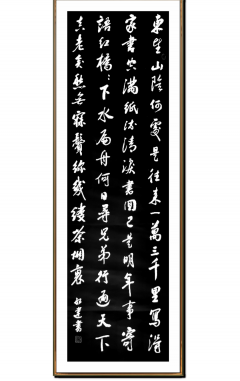 東望山陰何處是往来一萬三千里寫得
家書空滿紙流清淚書回已是明年事寄
語紅橋〻下水扁舟何日尋兄弟行遍天下
真老矣愁无寐鬢絲幾縷茶烟裏
書